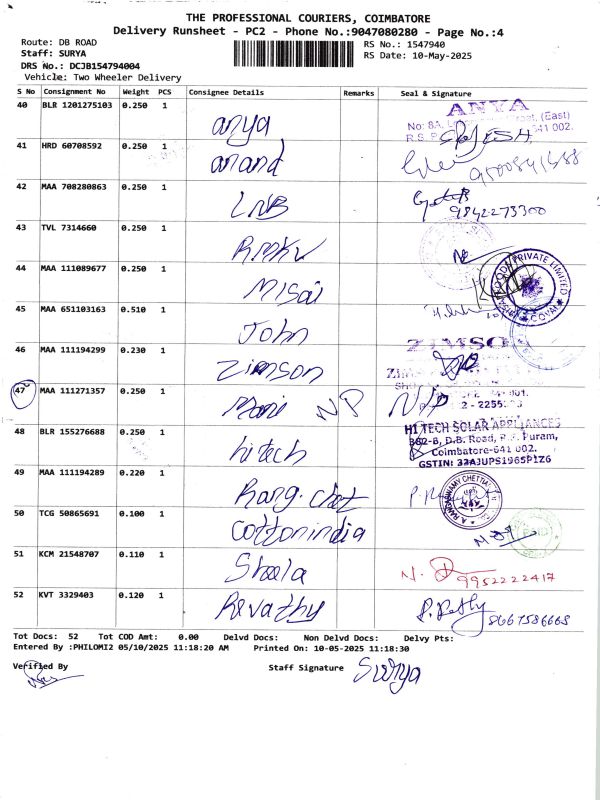 THE PROFESSIONAL COURIERS, COIMBATORE
Delivery Runsheet - PC2 - Phone No.:9047080280 - Page No.:4
Route: DB ROAD
RS No.: 1547940
Staff: SURYA
RS Date: 10-May-2025
DRS No.: DCJB154794004
Vehicle: Two Wheeler Delivery
S No Consignment No Weight PCS Consignee Details Remarks Seal & Signature
40 BLR 1201275103 0.250 1 anya
ANYA
(East)
641 002.
41 HRD 60708592 0.250 1 anand
42 MAA 708280863 0.250 1 LNB
9842273300
43 TVL 7314660 0.250 1 RMKV
44 MAA 111089677 0.250 1 Misai
PRIVATE LIMITED
45 MAA 651103163 0.510 1 John
46 MAA 111194299 0.230 1 Zimson
ZIMSON
47 MAA 111271357 0.250 1 NP N/P
48 BLR 155276688 0.250 1 hitech
HI TECH SOLAR APPLIANCES
382-B, D.B. Road, R.S. Puram,
Coimbatore-641 002.
GSTIN: 33AJUPS1965P1Z6
49 MAA 111194289 0.220 1 Rang. chet
50 TCG 50865691 0.100 1 Cottonindia
51 KCM 21548707 0.110 1 Sheela
9952222417
52 KVT 3329403 0.120 1 Revathy
8667586668
Tot Docs: 52 Tot COD Amt: 0.00 Delvd Docs: Non Delvd Docs: Delvy Pts:
Entered By :PHILOMI2 05/10/2025 11:18:20 AM Printed On: 10-05-2025 11:18:30
Verified By
Staff Signature Surya